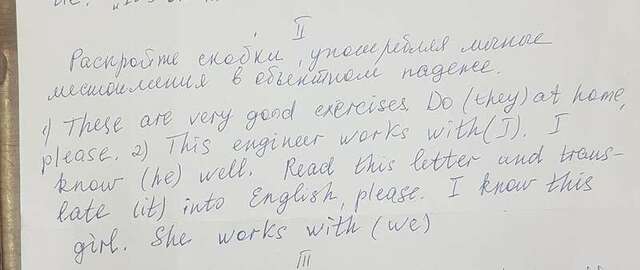 II
Раскройте скобки, употребляя личные
местоимения в объектном падеже.
1) These are very good exercises. Do (they) at home,
please. 2) This engineer works with (I). I
know (he) well. Read this letter and trans-
late (it) into English, please. I know this
girl. She works with (we)
III